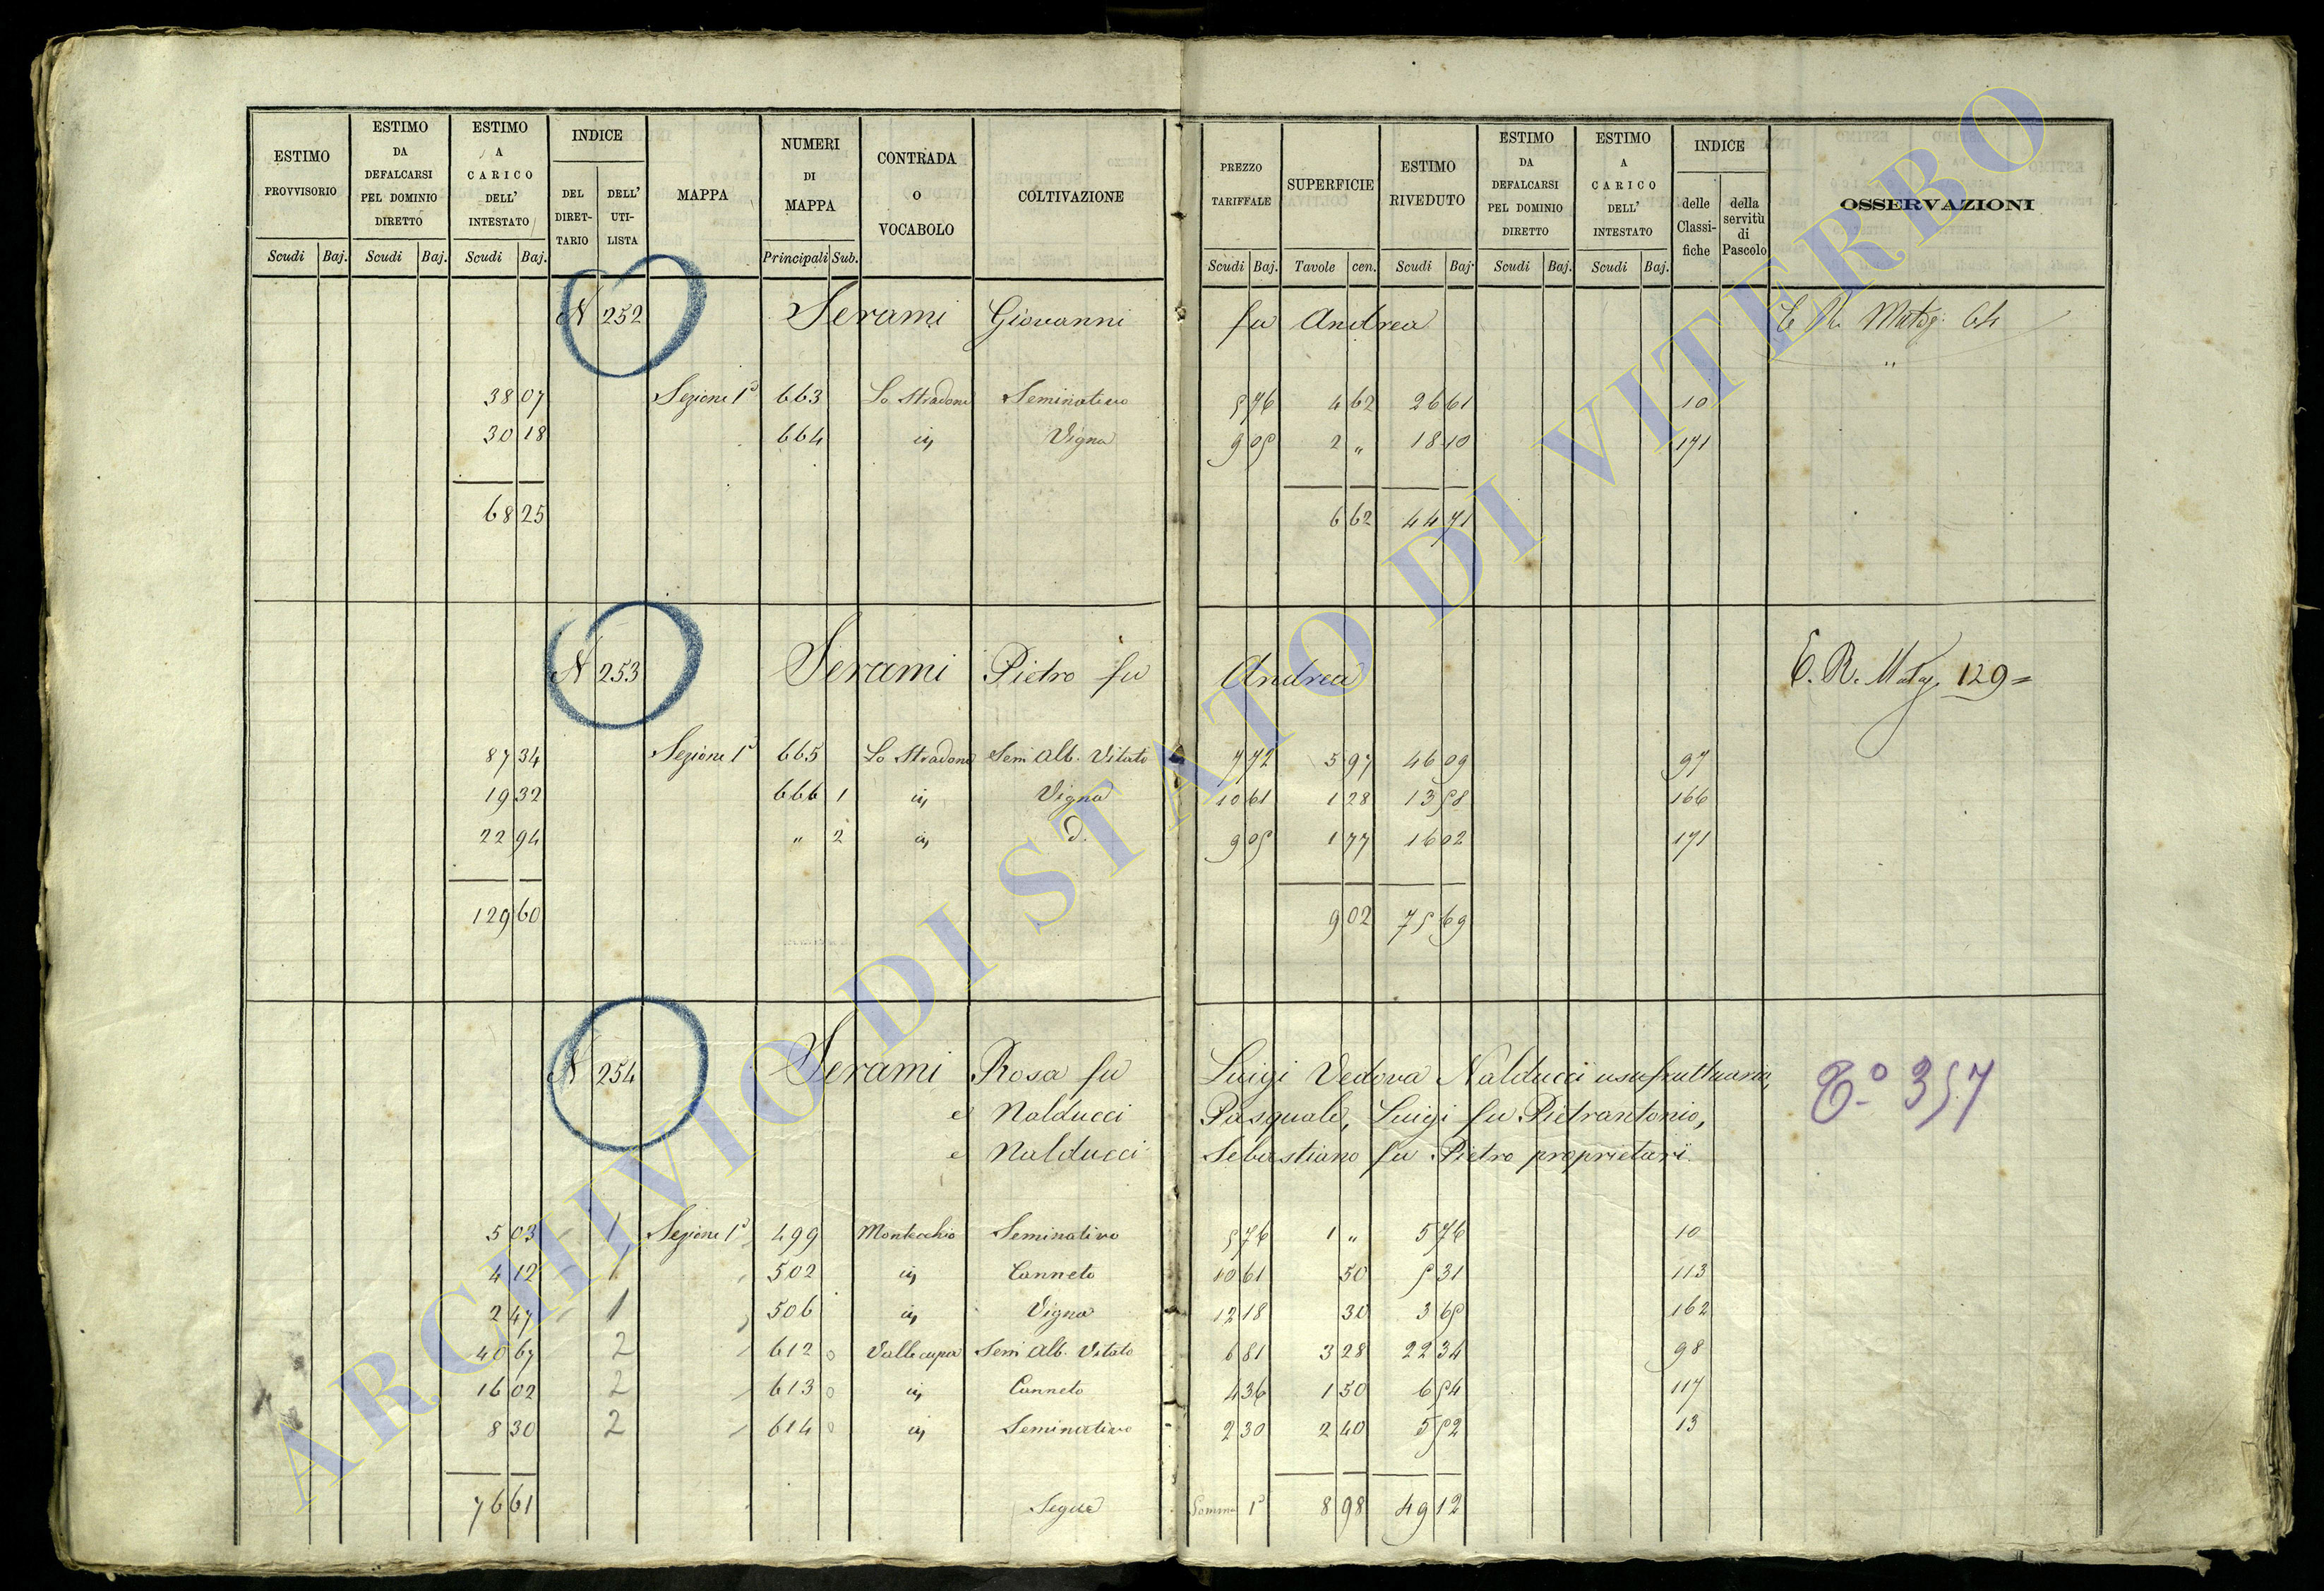 ESTIMO PROVVISORIO Scudi Baj.
ESTIMO DA DEFALCARSI PEL DOMINIO DIRETTO Scudi Baj.
ESTIMO A CARICO DELL' INTESTATO Scudi Baj.
INDICE DEL DIRET-TARIO DELL' UTI-LISTA
MAPPA
NUMERI DI MAPPA Principali Sub.
CONTRADA O VOCABOLO
COLTIVAZIONE
PREZZO TARIFFALE Scudi Baj.
SUPERFICIE Tavole cen.
ESTIMO RIVEDUTO Scudi Baj.
ESTIMO DA DEFALCARSI PEL DOMINIO DIRETTO Scudi Baj.
ESTIMO A CARICO DELL' INTESTATO Scudi Baj.
INDICE delle Classi-fiche della servitù di Pascolo
OSSERVAZIONI
N 252 Serami Giovanni fu Andrea
38 07 Sezione 1ª 663 Lo Stradone Seminativo 5 76 4 62 26 61 10
30 18 664 id Vigna 9 05 2 " 18 10 171
68 25 6 62 44 71
N 253 Serami Pietro fu Andrea E. R. Matg. 129=
87 34 Sezione 1ª 665 Lo Stradone Sem Alb. Vitato 7 72 5 97 46 09 97
19 32 666 1 id Vigna 10 61 1 28 13 58 166
22 94 " 2 id D. 9 05 1 77 16 02 171
129 60 9 02 75 69
N 254 Serami Rosa fu Luigi Vedova Nalducci usufruttuaria,
e Nalducci Pasquale, Luigi fu Pietrantonio,
e Nalducci Sebastiano fu Pietro proprietarî
Eº 357
5 03 1 Sezione 1ª 499 Montecchio Seminativo 5 76 1 " 5 76 10
4 12 1 502 id Canneto 10 61 50 5 31 113
2 47 1 506 id Vigna 12 18 30 3 65 162
40 67 2 612 0 Valle cupa Sem Alb. Vitato 6 81 3 28 22 34 98
16 02 2 613 0 id Canneto 4 36 1 50 6 54 117
8 30 2 614 0 id Seminativo 2 30 2 40 5 52 13
76 61 Segue Somma 1ª 8 98 49 12
ARCHIVIO DI STATO DI VITERBO